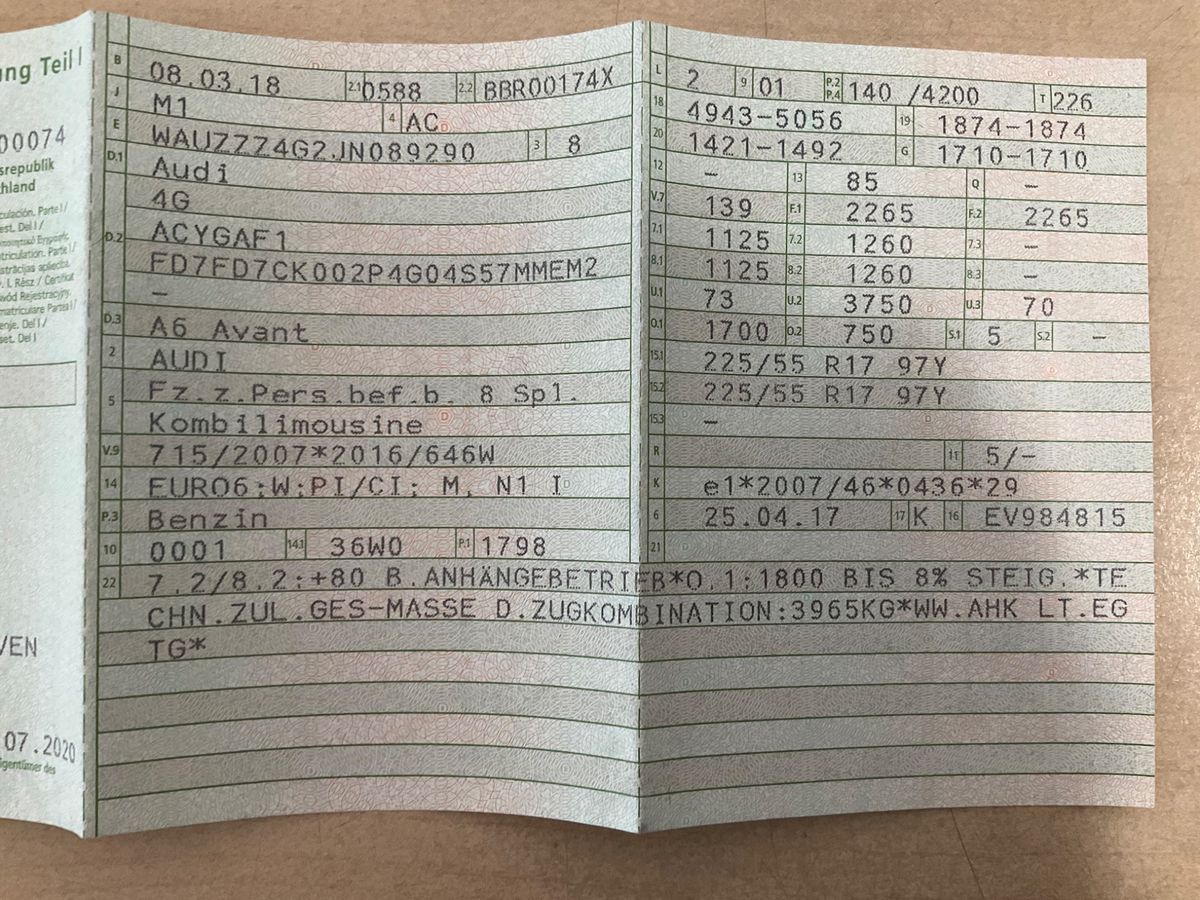 ung Teil I
00074
srepublik
chland
07.2020
VEN
B 08.03.18 2.1 0588 2.2 BBR00174X
J M1 4 AC
E WAUZZZ4G2JN089290 3 8
D.1 Audi
4G
D.2 ACYGAF1
FD7FD7CK002P4G04S57MMEM2
–
D.3 A6 Avant
2 AUDI
5 Fz.z.Pers.bef.b. 8 Spl.
Kombilimousine
V.9 715/2007*2016/646W
14 EURO6;W;PI/CI; M, N1 I
P.3 Benzin
10 0001 14.1 36W0 P.1 1798
L 2 9 01 P.2 P.4 140 /4200 T 226
18 4943-5056 19 1874-1874
20 1421-1492 G 1710-1710
12 – 13 85 Q –
V.7 139 F.1 2265 F.2 2265
7.1 1125 7.2 1260 7.3 –
8.1 1125 8.2 1260 8.3 –
U.1 73 U.2 3750 U.3 70
O.1 1700 O.2 750 S.1 5 S.2 –
15.1 225/55 R17 97Y
15.2 225/55 R17 97Y
15.3 –
R 11 5/-
K e1*2007/46*0436*29
6 25.04.17 17 K 16 EV984815
21
22 7.2/8.2:+80 B.ANHÄNGEBETRIEB*O.1:1800 BIS 8% STEIG.*TE
CHN.ZUL.GES-MASSE D.ZUGKOMBINATION:3965KG*WW.AHK LT.EG
TG*